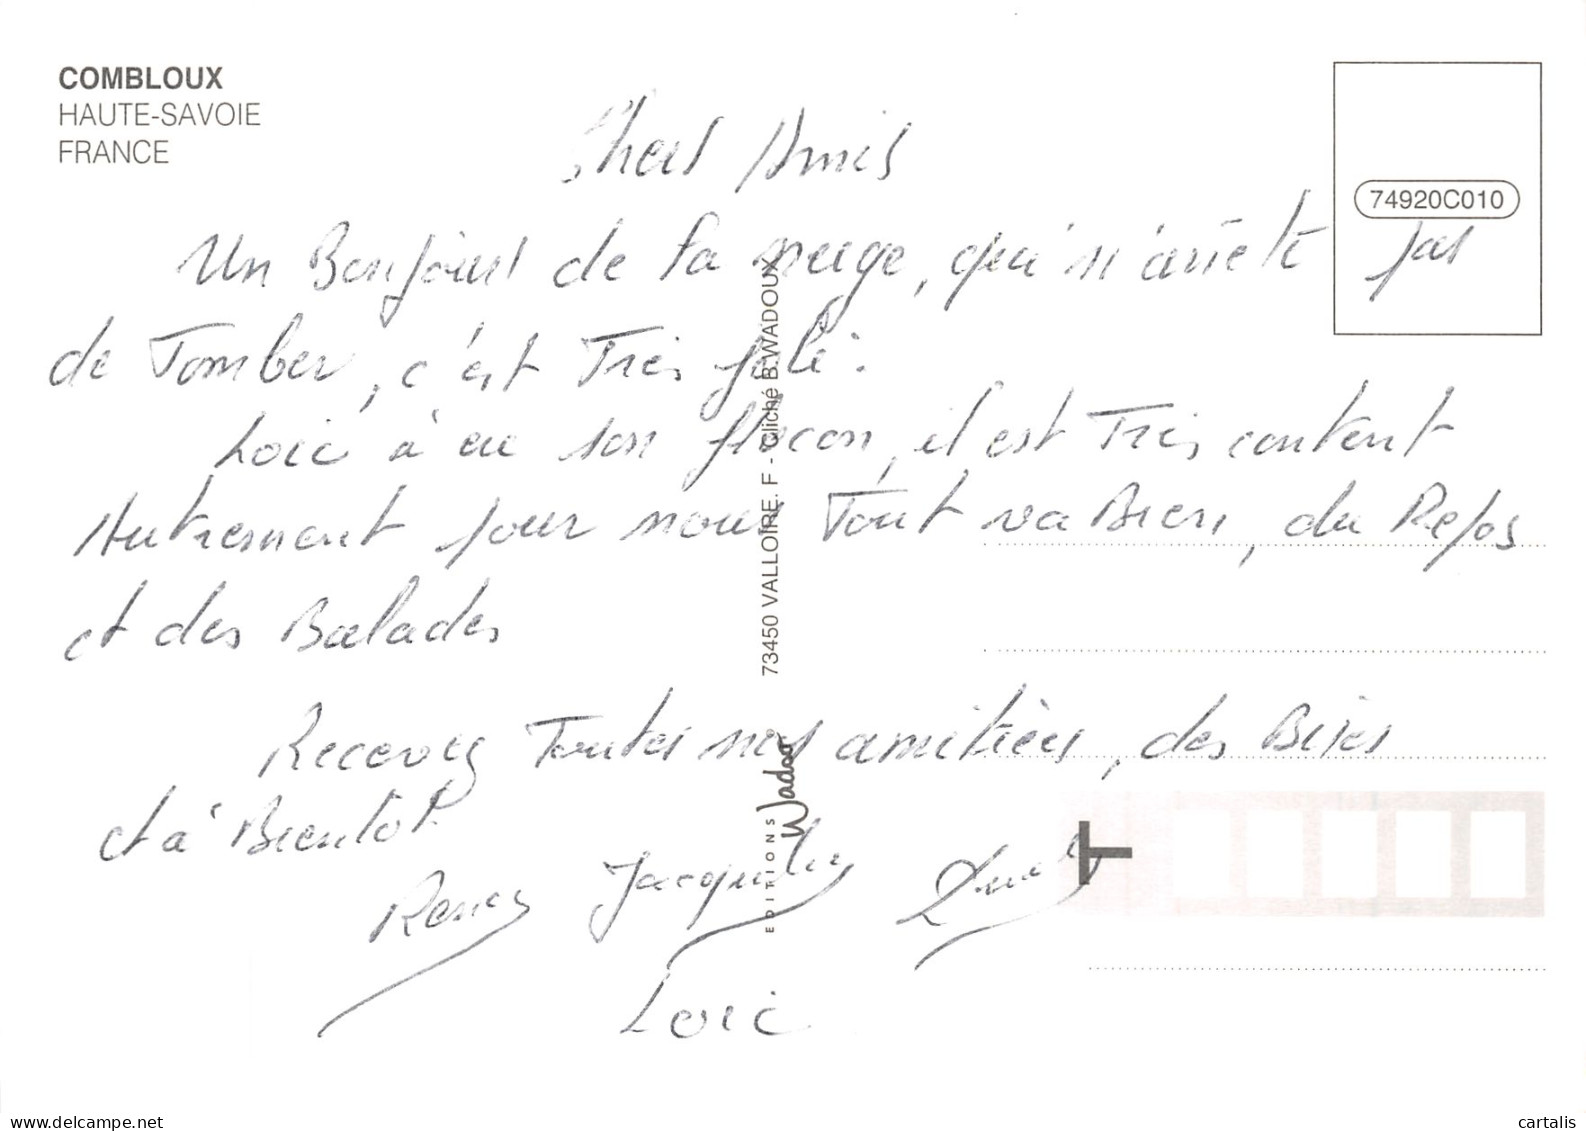 COMBLOUX
HAUTE-SAVOIE
FRANCE
74920C010
Chers Amis
Un Bonjour de la neige, qui n'arrête pas
de Tomber, c'est Très joli.
Loic à eu son flocon, il est Très content
Autrement pour nous Tout va Bien, du Repos
et des Balades
Recevez Toutes nos amitiés, des Bises
et à Bientot
Jacqueline
Loic
73450 VALLOIRE. F - Cliché B.WADOUX
EDITIONS Wadoo
T
delcampe.net
cartalis